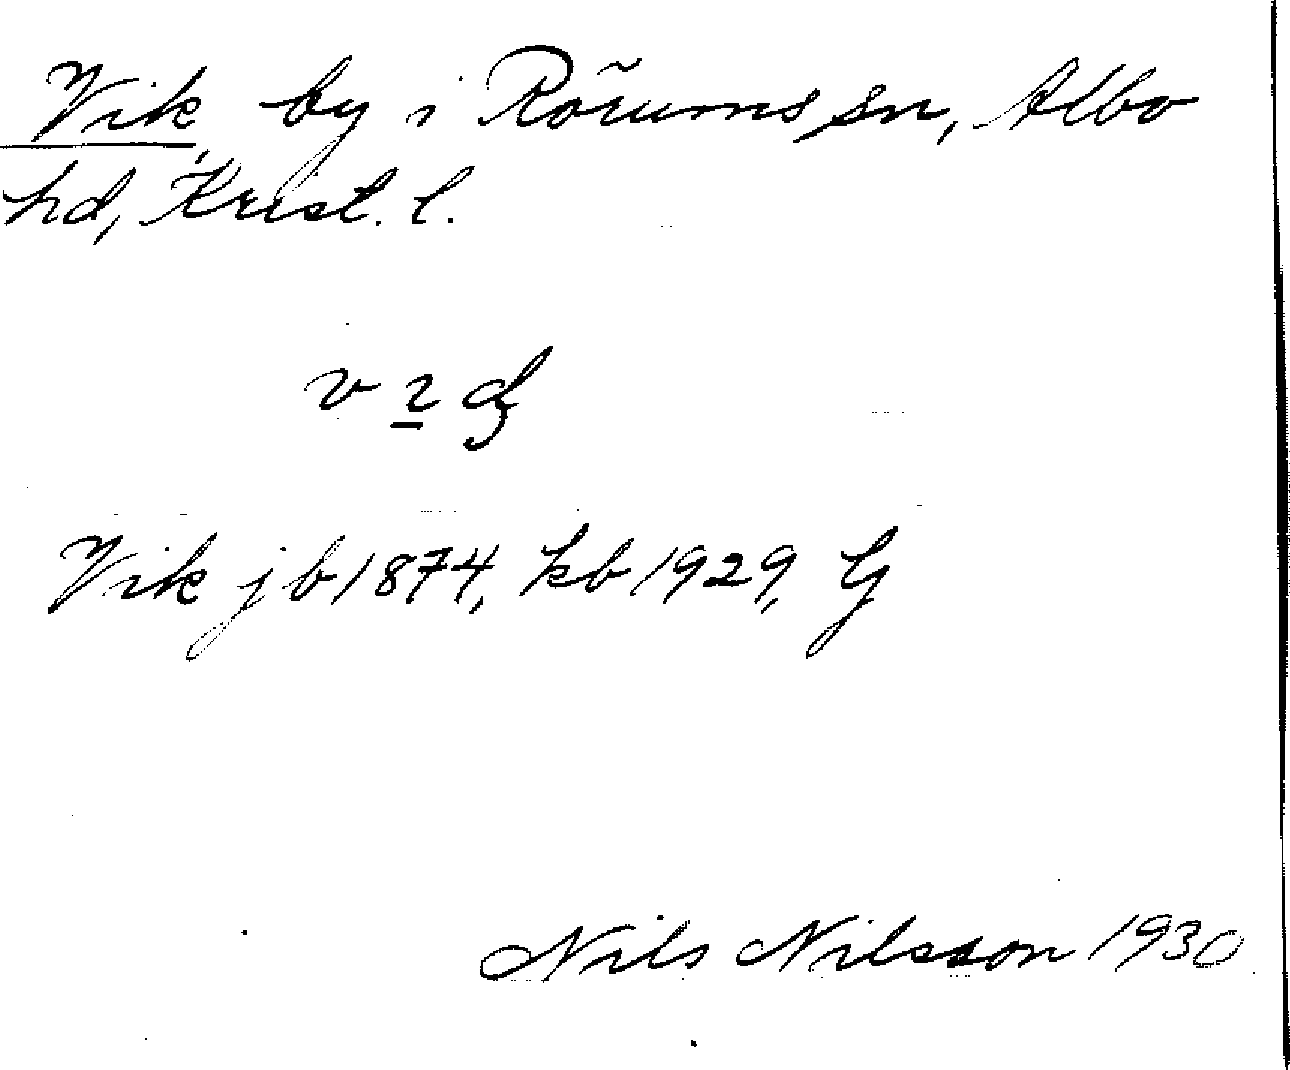 Vik, by i Rörums sn, Albo
hd, Krist. l.
Vik jb 1874, kb 1929, G
Nils Nilsson 1930